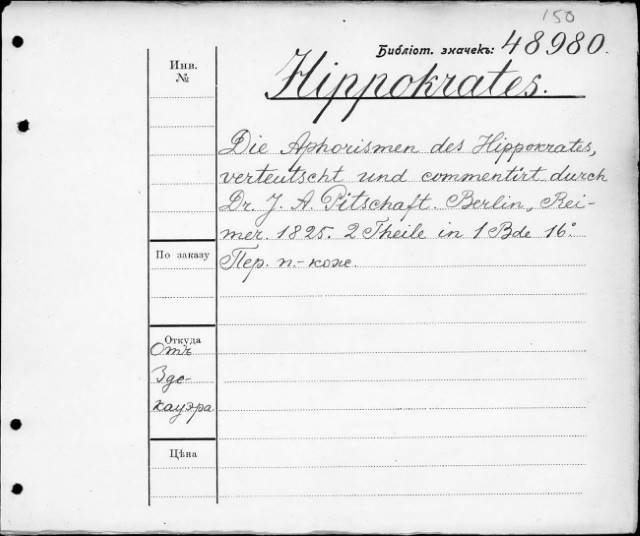 150
Библіот. значекъ: 48980.
Инв.
№
Hippokrates.
Die Aphorismen des Hippokrates,
verteutscht und commentirt durch
Dr. J. A. Pitschaft. Berlin, Rei-
mer. 1825. 2 Theile in 1 Bde 16°.
По заказу
Пер. п.-коже.
Откуда
Отъ
Здe-
кауэра
Цѣна